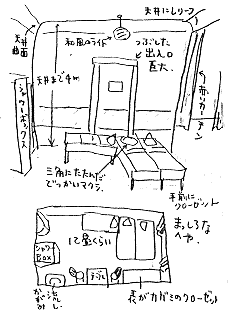 天井にレリーフ
天井
曲面
和風のライト
つぶした
出入口
巨大.
天井まで4m
シャワーボックス
赤いカーテン
三角にたたんだ
でっかいマクラ.
手前に
クローゼット
まっしろな
へや.
12畳くらい
シャワー
Box
テーブル
かがみ
表がカガミのクローゼット